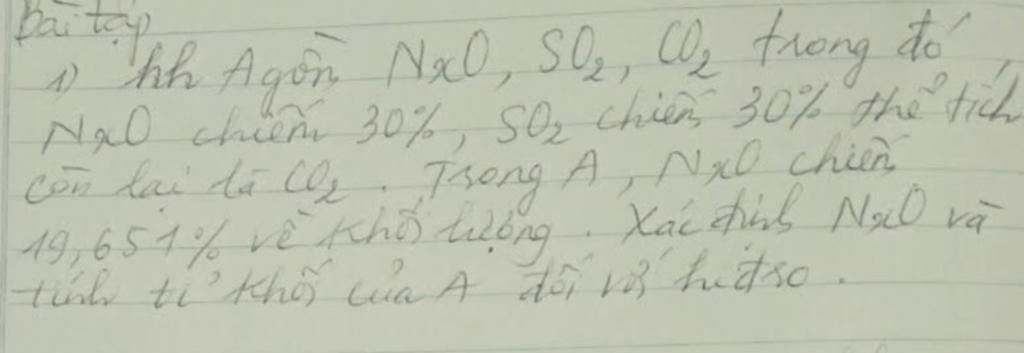 Bài tập
1) hh A gồm NxO, SO2, CO2 trong đó,
NxO chiếm 30%, SO2 chiếm 30% thể tích
còn lại là CO2. Trong A, NxO chiếm
19,651% về khối lượng. Xác định NxO và
tính tỉ khối của A đối với hiđro.